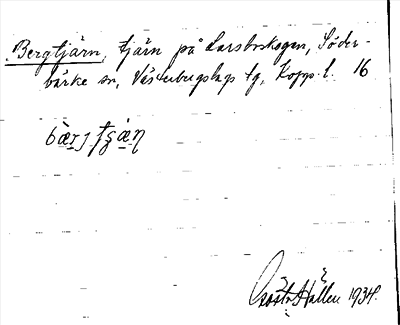 Bergtjärn, tjärn på Larsboskogen, Söder-
bärke sn, Västerbergslags tg, Kopp. l. 16
Gösta Hallén 1934.